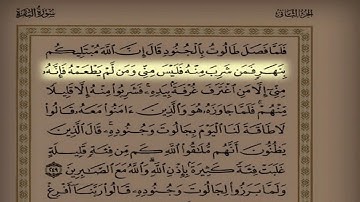 الجزء الثاني
سورة البقرة
فَلَمَّا فَصَلَ طَالُوتُ بِالْجُنُودِ قَالَ إِنَّ اللَّهَ مُبْتَلِيكُم
بِنَهَرٍ فَمَن شَرِبَ مِنْهُ فَلَيْسَ مِنِّي وَمَن لَّمْ يَطْعَمْهُ فَإِنَّهُ
مِنِّي إِلَّا مَنِ اغْتَرَفَ غُرْفَةً بِيَدِهِ ۚ فَشَرِبُوا مِنْهُ إِلَّا قَلِيلًا
مِّنْهُمْ ۚ فَلَمَّا جَاوَزَهُ هُوَ وَالَّذِينَ آمَنُوا مَعَهُ قَالُوا
لَا طَاقَةَ لَنَا الْيَوْمَ بِجَالُوتَ وَجُنُودِهِ ۚ قَالَ الَّذِينَ
يَظُنُّونَ أَنَّهُم مُّلَاقُو اللَّهِ كَم مِّن فِئَةٍ قَلِيلَةٍ
غَلَبَتْ فِئَةً كَثِيرَةً بِإِذْنِ اللَّهِ ۗ وَاللَّهُ مَعَ الصَّابِرِينَ ٢٤٩
وَلَمَّا بَرَزُوا لِجَالُوتَ وَجُنُودِهِ قَالُوا رَبَّنَا أَفْرِغْ